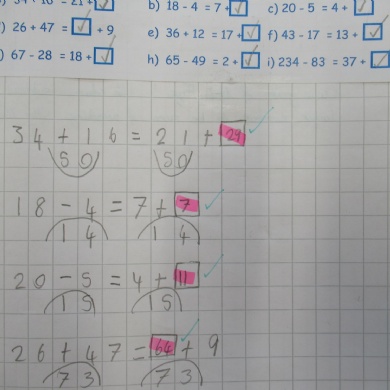 34 + 16 = 21 + ✓
b) 18 - 4 = 7 + ✓ c) 20 - 5 = 4 + ✓
) 26 + 47 = ✓ + 9 e) 36 + 12 = 17 + ✓ f) 43 - 17 = 13 + ✓
) 67 - 28 = 18 + ✓ h) 65 - 49 = 2 + ✓ i) 234 - 83 = 37 + ✓
34 + 16 = 21 + 29 ✓
50 50
18 - 4 = 7 + 7 ✓
14 14
20 - 5 = 4 + 11 ✓
15 15
26 + 47 = 64 + 9 ✓
73 73